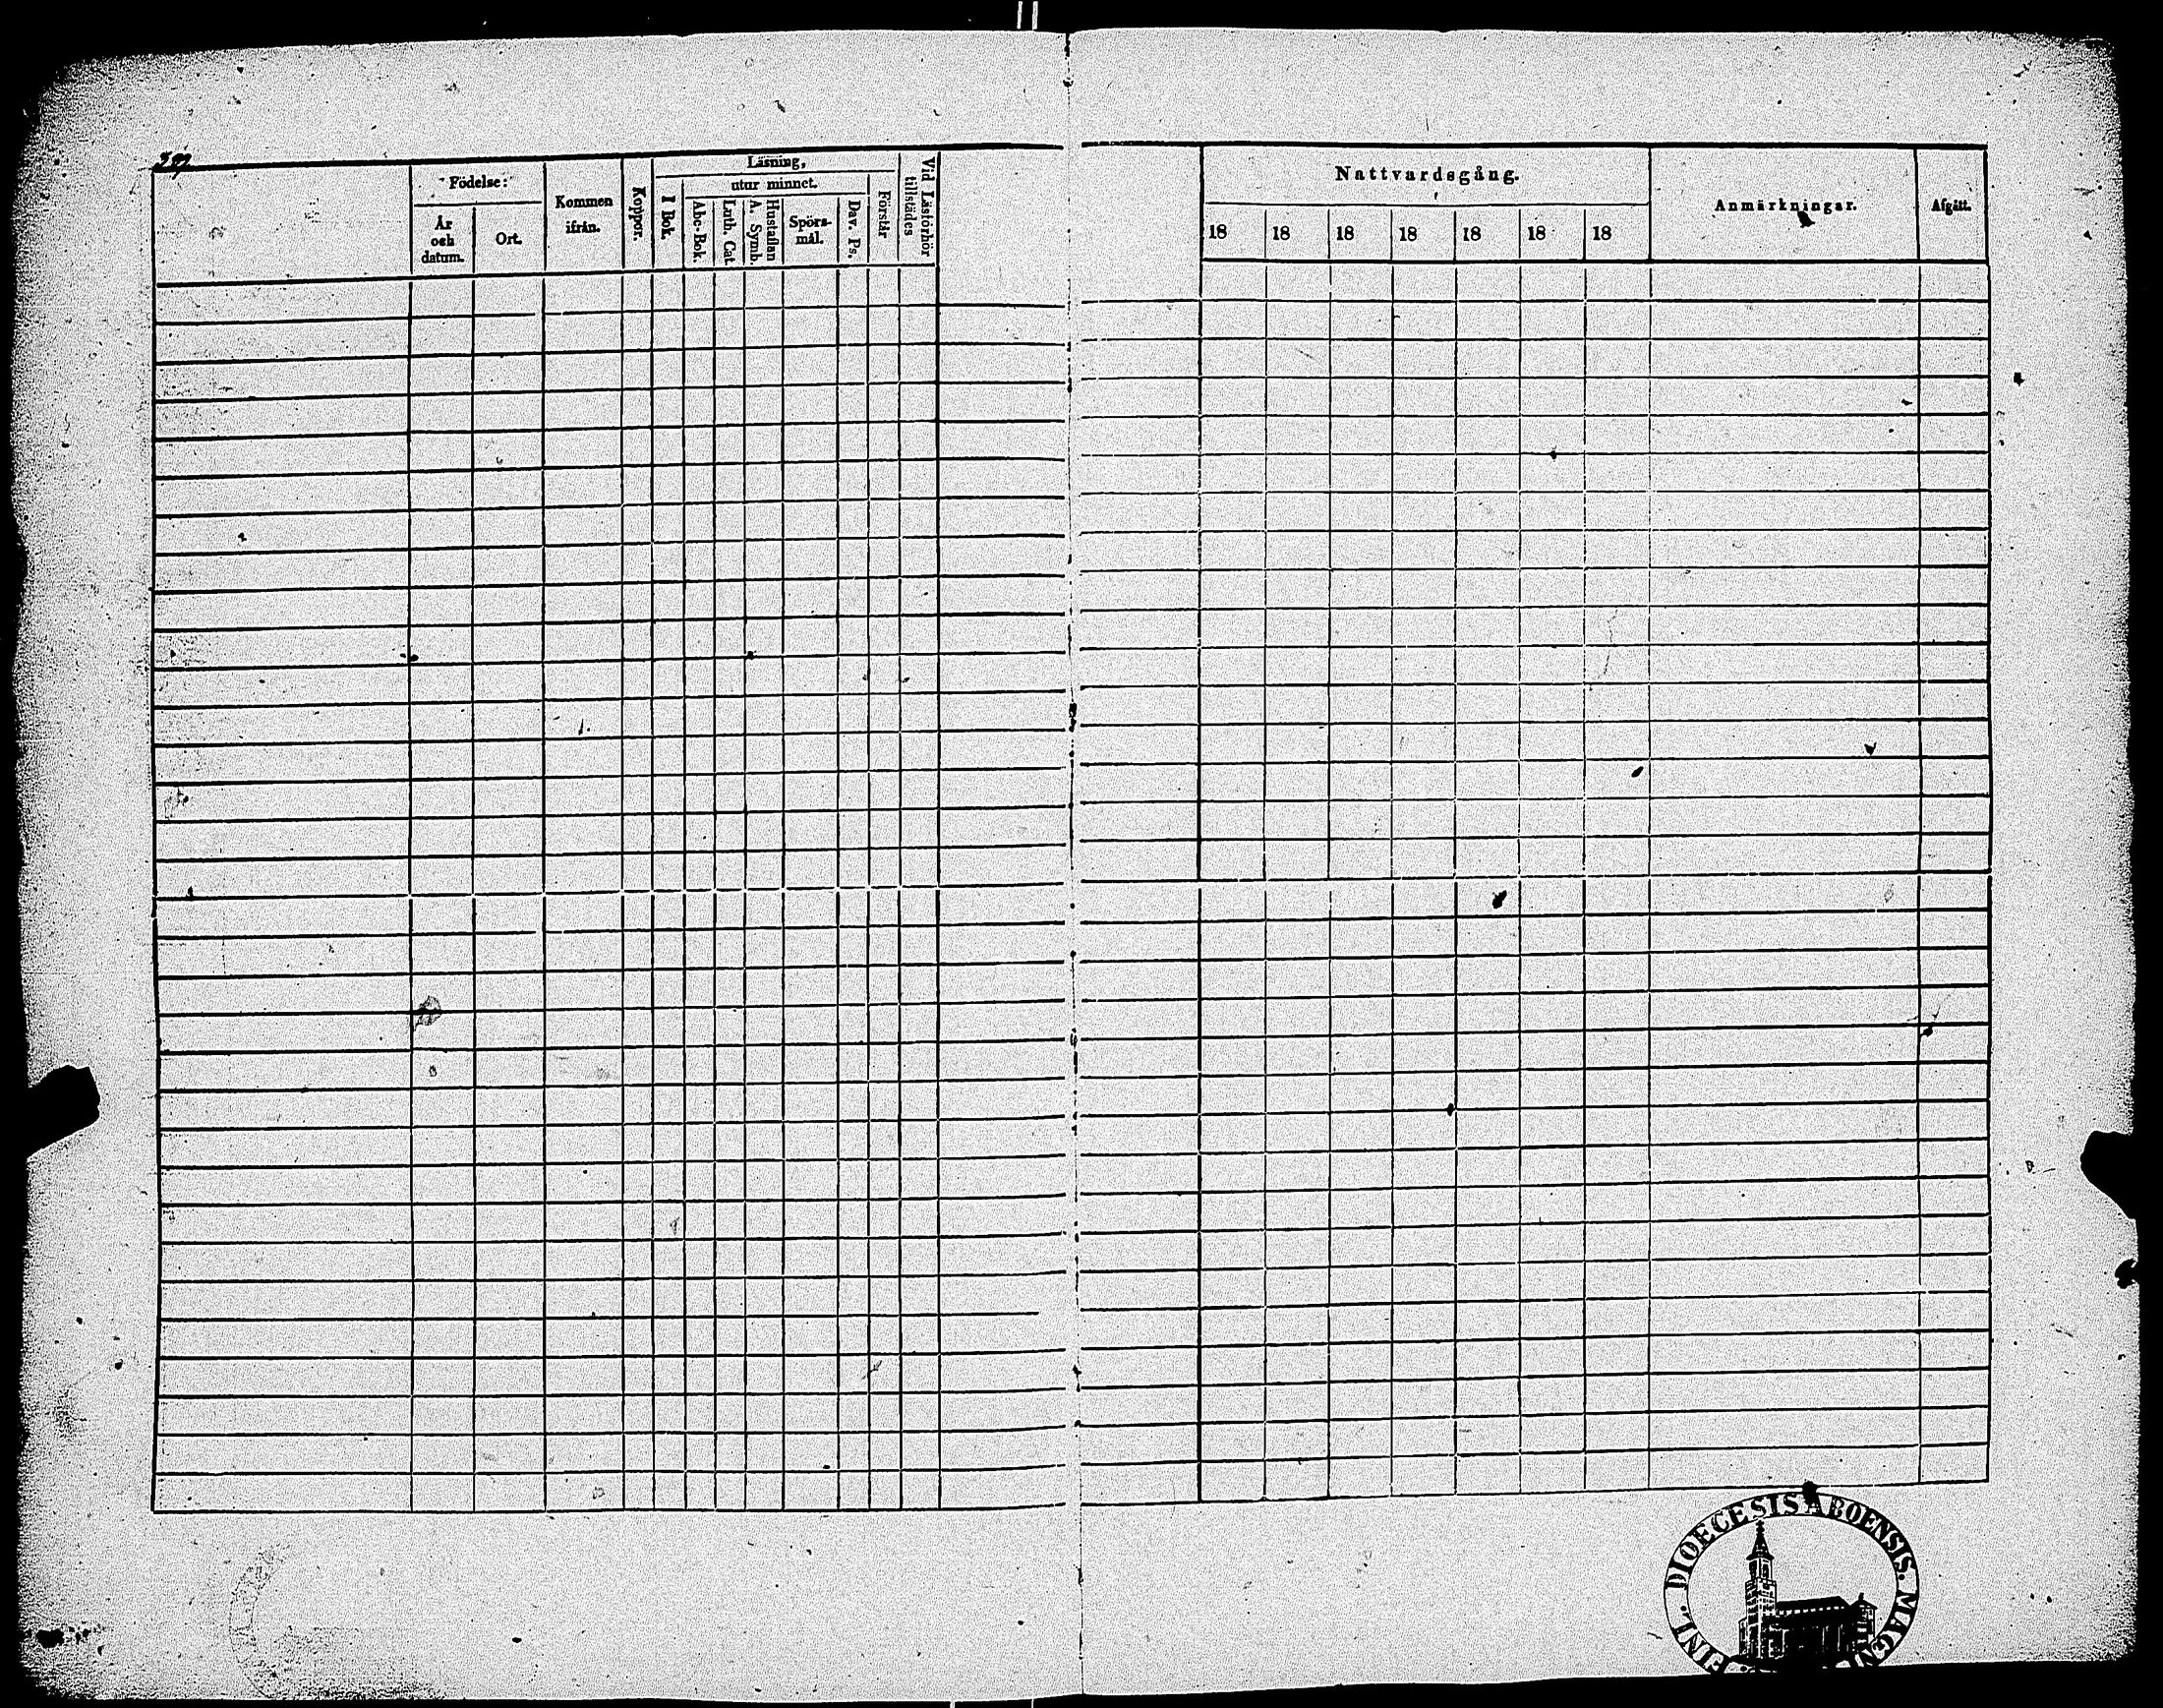 Födelse:
År och datum.
Ort.
Kommen ifrån.
Koppor.
Läsning,
utur minnet.
I Bok.
Abc-Bok.
Luth. Cat.
Hustaflan A. Symb.
Spörs-mål.
Dav. Ps.
Förstår
Vid Läsförhör tillstädes
Nattvardsgång.
18 18 18 18 18 18 18
Anmärkningar.
Afgått.
DIOECESIS ABOENSIS. MAGN
FINL.